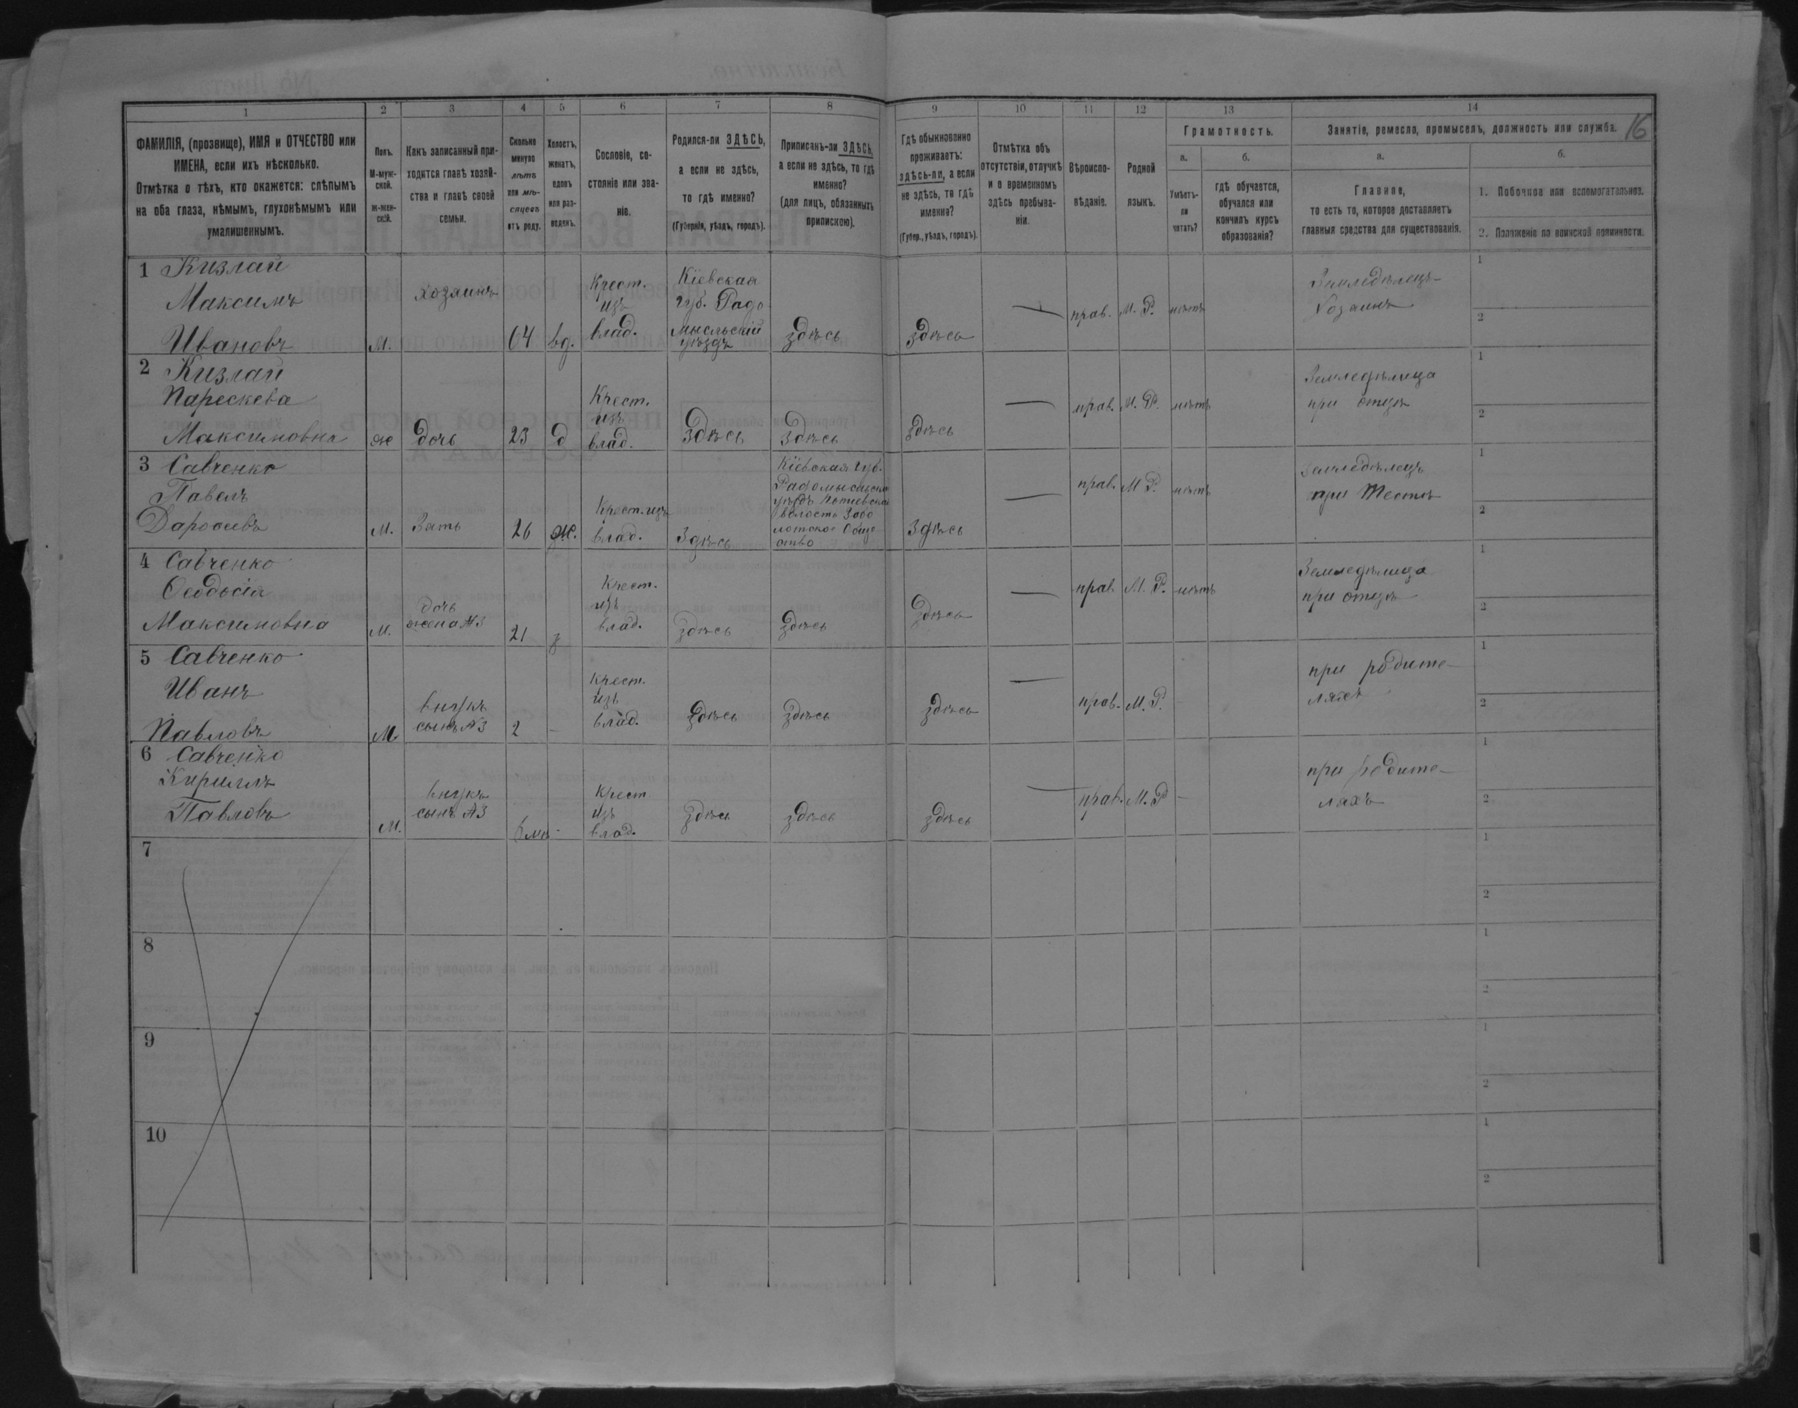 1 2 3 4 5 6 7 8 9 10 11 12 13 14
16
ФАМИЛІЯ, (прозвище), ИМЯ и ОТЧЕСТВО или
ИМЕНА, если ихъ нѣсколько.
Отмѣтка о тѣхъ, кто окажется: слѣпымъ
на оба глаза, нѣмымъ, глухонѣмымъ или
умалишеннымъ.
Полъ.
М-муж-
ской.
ж-жен-
скій.
Какъ записанный при-
ходится главѣ хозяй-
ства и главѣ своей
семьи.
Сколько
минуло
лѣтъ
или мѣ-
сяцевъ
отъ роду.
Холостъ,
женатъ,
вдовъ
или раз-
веденъ.
Сословіе, со-
стояніе или зва-
ніе.
Родился-ли ЗДѢСЬ,
а если не здѣсь,
то гдѣ именно?
(Губернія, уѣздъ, городъ).
Приписанъ-ли ЗДѢСЬ,
а если не здѣсь, то гдѣ
именно?
(для лицъ, обязанныхъ
припискою).
Гдѣ обыкновенно
проживаетъ:
здѣсь-ли, а если
не здѣсь, то гдѣ
именно?
(Губер., уѣздъ, городъ).
Отмѣтка объ
отсутствіи, отлучкѣ
и о временномъ
здѣсь пребыва-
ніи.
Вѣроиспо-
вѣданіе.
Родной
языкъ.
Грамотность.
а.
Умѣетъ-
ли
читать?
б.
гдѣ обучается,
обучался или
кончилъ курсъ
образованія?
Занятіе, ремесло, промыселъ, должность или служба.
а.
Главное,
то есть то, которое доставляетъ
главныя средства для существованія.
б.
1. Побочное или вспомогательное.
2. Положеніе по воинской повинности.
1 Кизлай
Максимъ
Ивановъ
М.
хозяинъ
64
вд.
Крест.
изъ
влад.
Кіевская
губ. Радо
мысльскій
уѣздъ
здѣсь
здѣсь
—
прав.
М. Р.
нѣтъ
Земледѣлецъ
Хозяинъ
1
2
2 Кизлай
Парескева
Максимовна
ж
дочь
23
д
Крест.
изъ
влад.
Здѣсь
Здѣсь
здѣсь
—
прав.
М. Р.
нѣтъ
Земледѣлица
при отцѣ
1
2
3 Савченко
Павелъ
М.
Зять
26
ж.
Крест. изъ
влад.
Здѣсь
Кіевская губ.
уѣздъ
Обще
ство
Здѣсь
—
прав.
М. Р.
нѣтъ
Земледѣлецъ
при Тестѣ
1
2
4 Савченко
Феодосія
Максимовна
М.
дочь
жена №3
21
з
Крест.
изъ
влад.
здѣсь
здѣсь
здѣсь
—
прав
М. Р.
нѣтъ
Земледѣлица
при отцѣ
1
2
5 Савченко
Иванъ
Павловъ
М.
внукъ
сынъ №3
2
-
Крест.
изъ
влад.
здѣсь
здѣсь
здѣсь
—
прав.
М. Р.
-
при родите-
ляхъ
1
2
6 Савченко
Кириллъ
Павловъ
М.
внукъ
сынъ №3
-
Крест
изъ
влад.
здѣсь
здѣсь
здѣсь
—
прав.
М. Р
-
при родите-
ляхъ
1
2
7
1
2
8
1
2
9
1
2
10
1
2